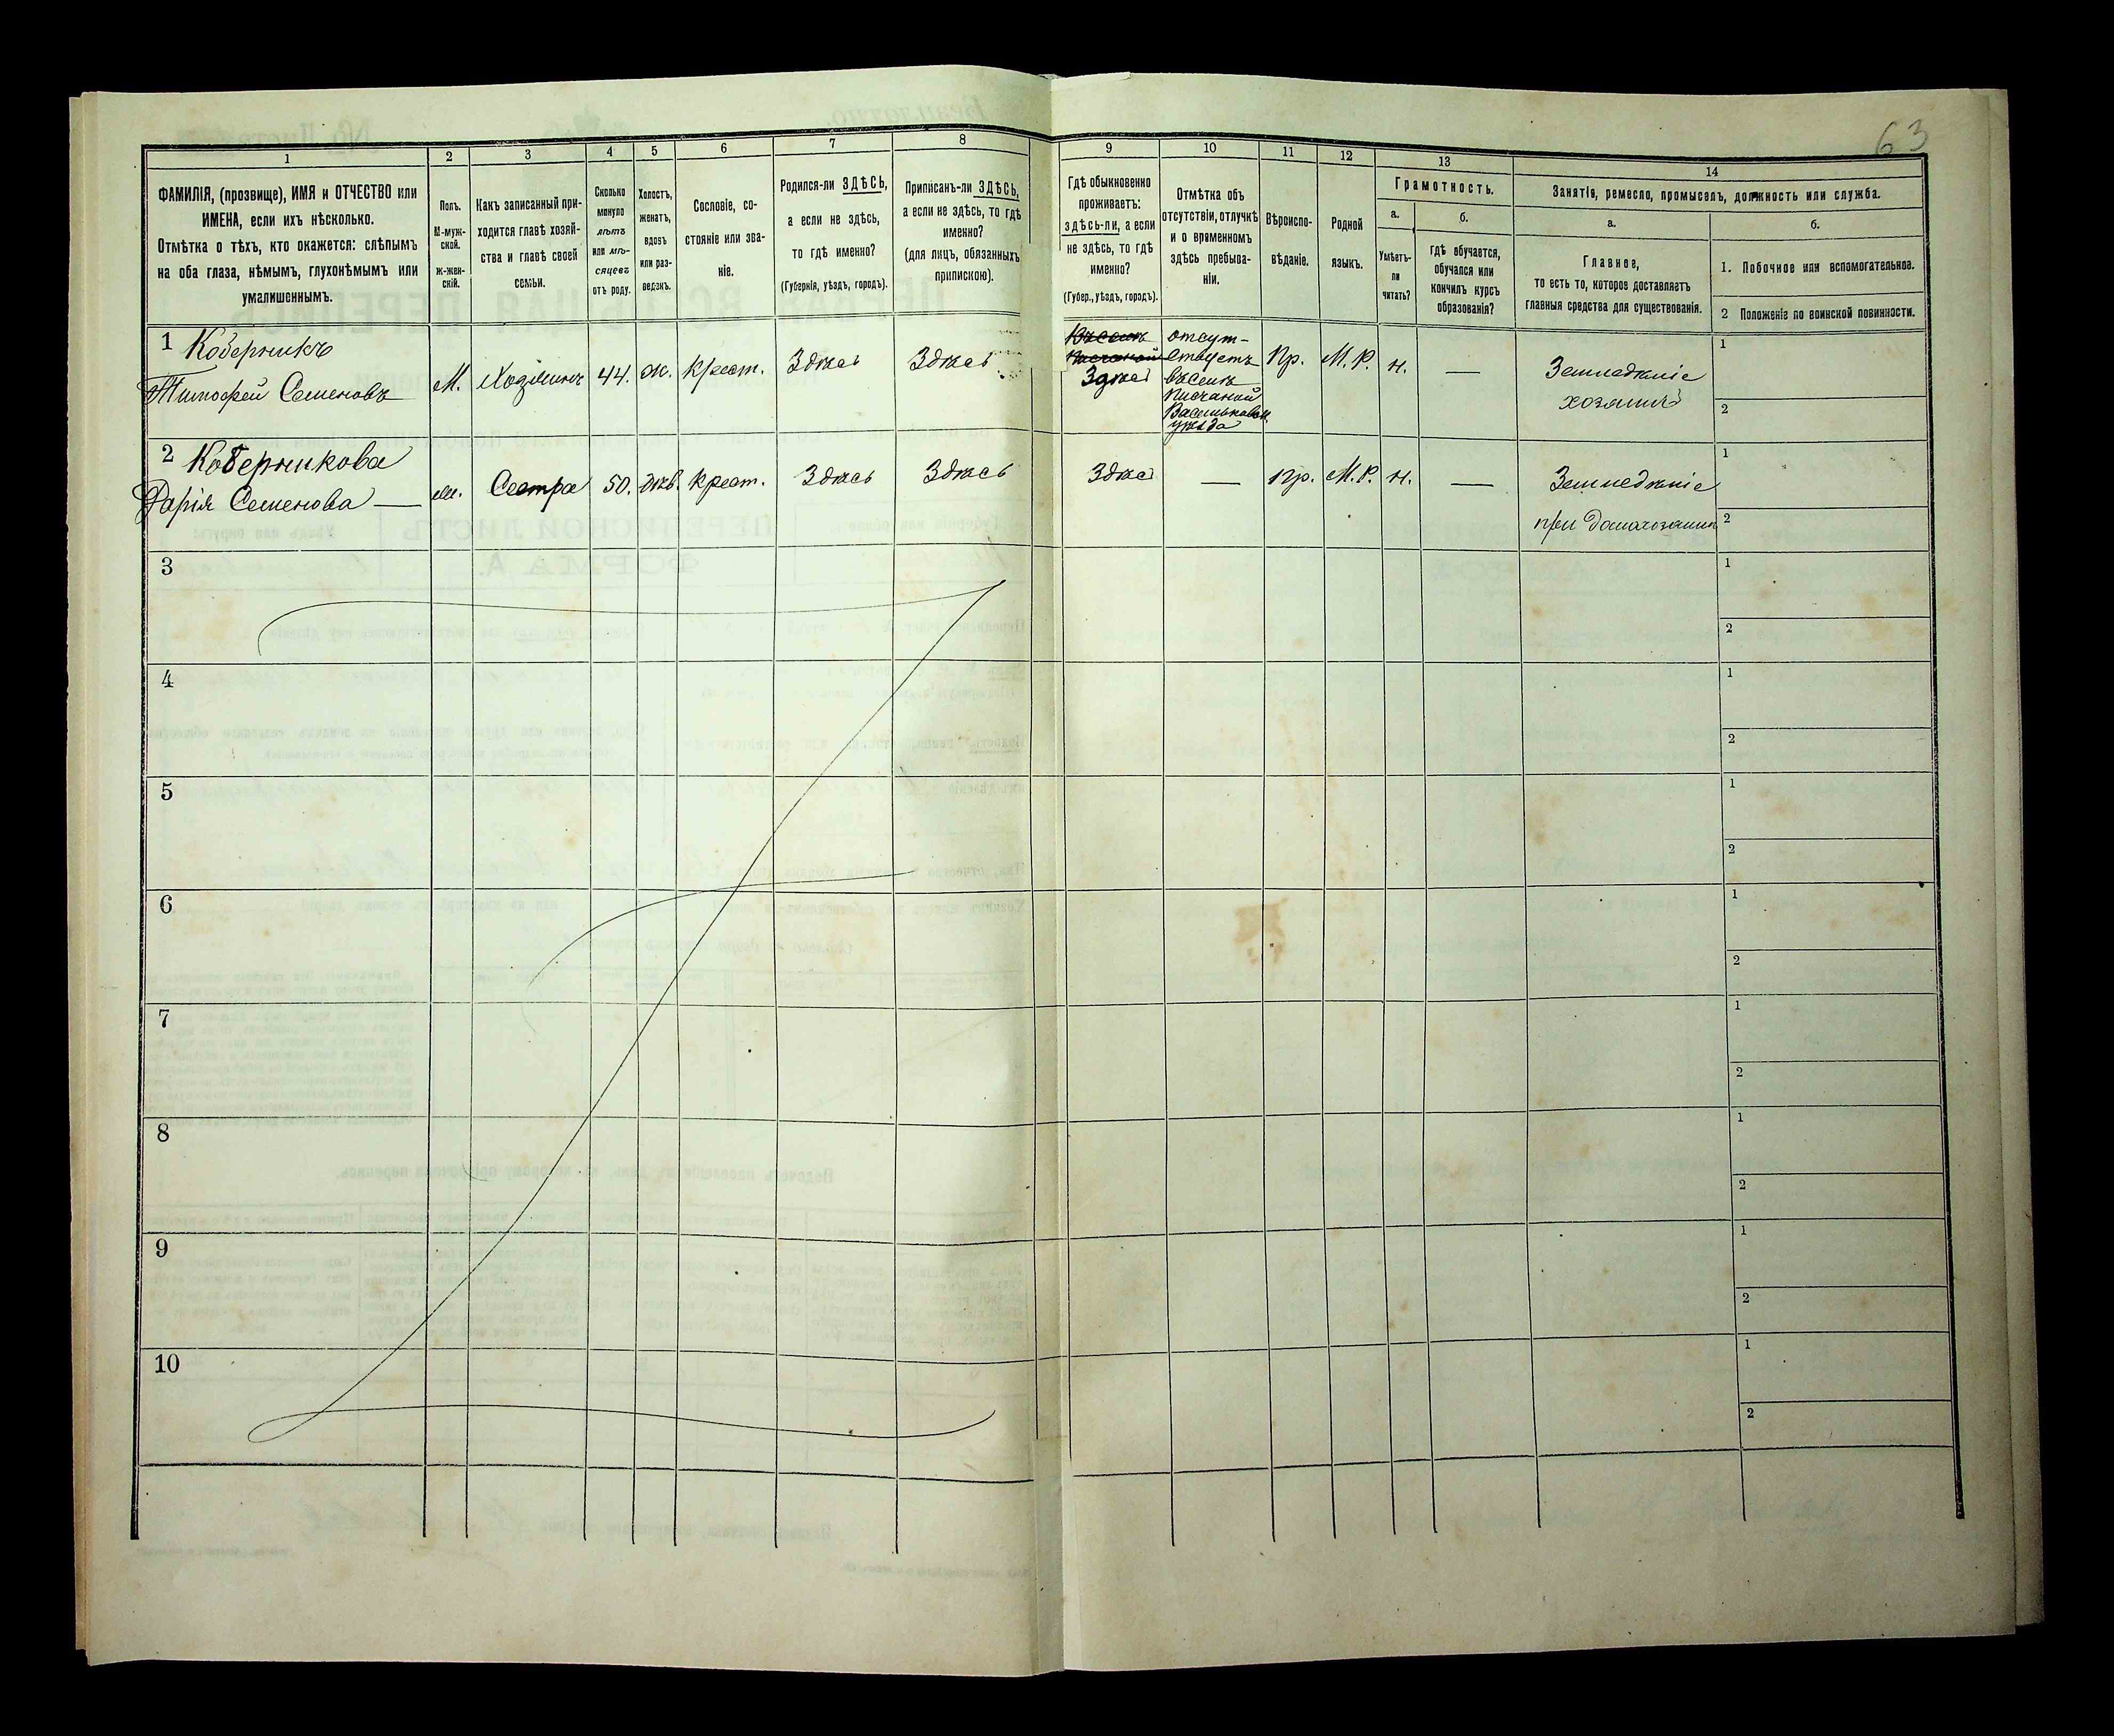 63
1
2
3
4
5
6
7
8
9
10
11
12
13
14
ФАМИЛІЯ, (прозвище), ИМЯ и ОТЧЕСТВО или
ИМЕНА, если ихъ нѣсколько.
Отмѣтка о тѣхъ, кто окажется: слѣпымъ
на оба глаза, нѣмымъ, глухонѣмымъ или
умалишеннымъ.
Полъ.
М-муж-
ской.
ж-жен-
скій.
Какъ записанный при-
ходится главѣ хозяй-
ства и главѣ своей
семьи.
Сколько
минуло
лѣтъ
или мѣ-
сяцевъ
отъ роду.
Холостъ,
женатъ,
вдовъ
или раз-
веденъ.
Сословіе, со-
стояніе или зва-
ніе.
Родился-ли ЗДѢСЬ,
а если не здѣсь,
то гдѣ именно?
(Губернія, уѣздъ, городъ).
Приписанъ-ли ЗДѢСЬ,
а если не здѣсь, то гдѣ
именно?
(для лицъ, обязанныхъ
припискою).
Гдѣ обыкновенно
проживаетъ:
здѣсь-ли, а если
не здѣсь, то гдѣ
именно?
(Губер., уѣздъ, городъ).
Отмѣтка объ
отсутствіи, отлучкѣ
и о временномъ
здѣсь пребыва-
ніи.
Вѣроиспо-
вѣданіе.
Родной
языкъ.
Грамотность.
а.
Умѣетъ-
ли
читать?
б.
гдѣ обучается,
обучался или
кончилъ курсъ
образованія?
Занятія, ремесло, промыселъ, должность или служба.
а.
Главное,
то есть то, которое доставляетъ
главныя средства для существованія.
б.
1. Побочное или вспомогательное.
2 Положеніе по воинской повинности.
1 Коберникъ
Тимофей Семеновъ
М.
Хозяинъ
44.
ж.
крест.
Здѣсь
Здѣсь
Здѣсь
отсут-
ствуетъ
въ селѣ
Писчаной
Васильковск.
уѣзда
Пр.
М. Р.
н.
—
Земледѣліе
хозяинъ
1
2
2 Коберникова
Дарія Семенова —
Сестра
50.
крест.
Здѣсь
Здѣсь
Здѣсь
—
пр.
М. Р.
н.
—
Земледѣліе
при домохозяинѣ
1
2
3
1
2
4
1
2
5
1
2
6
1
2
7
1
2
8
1
2
9
1
2
10
1
2